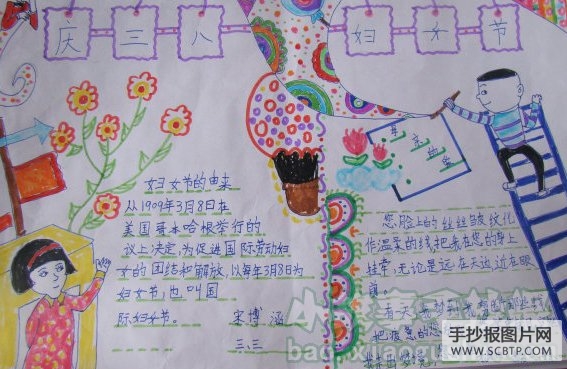 庆三八
妇女节
妇女节的由来
从1909年3月8日在
美国哥本哈根举行的
议上决定,为促进国际劳动妇
女的团结和解放,以每年3月8日为
妇女节,也叫国
际妇女节。 宋博涵
三、三
您脸上的丝丝皱纹化
作温柔的线,把我在您的身上
挂牵,无论是远在天边,近在眼
前。
有一天
把疲惫的
手抄报图片网
WWW.SCBTP.COM